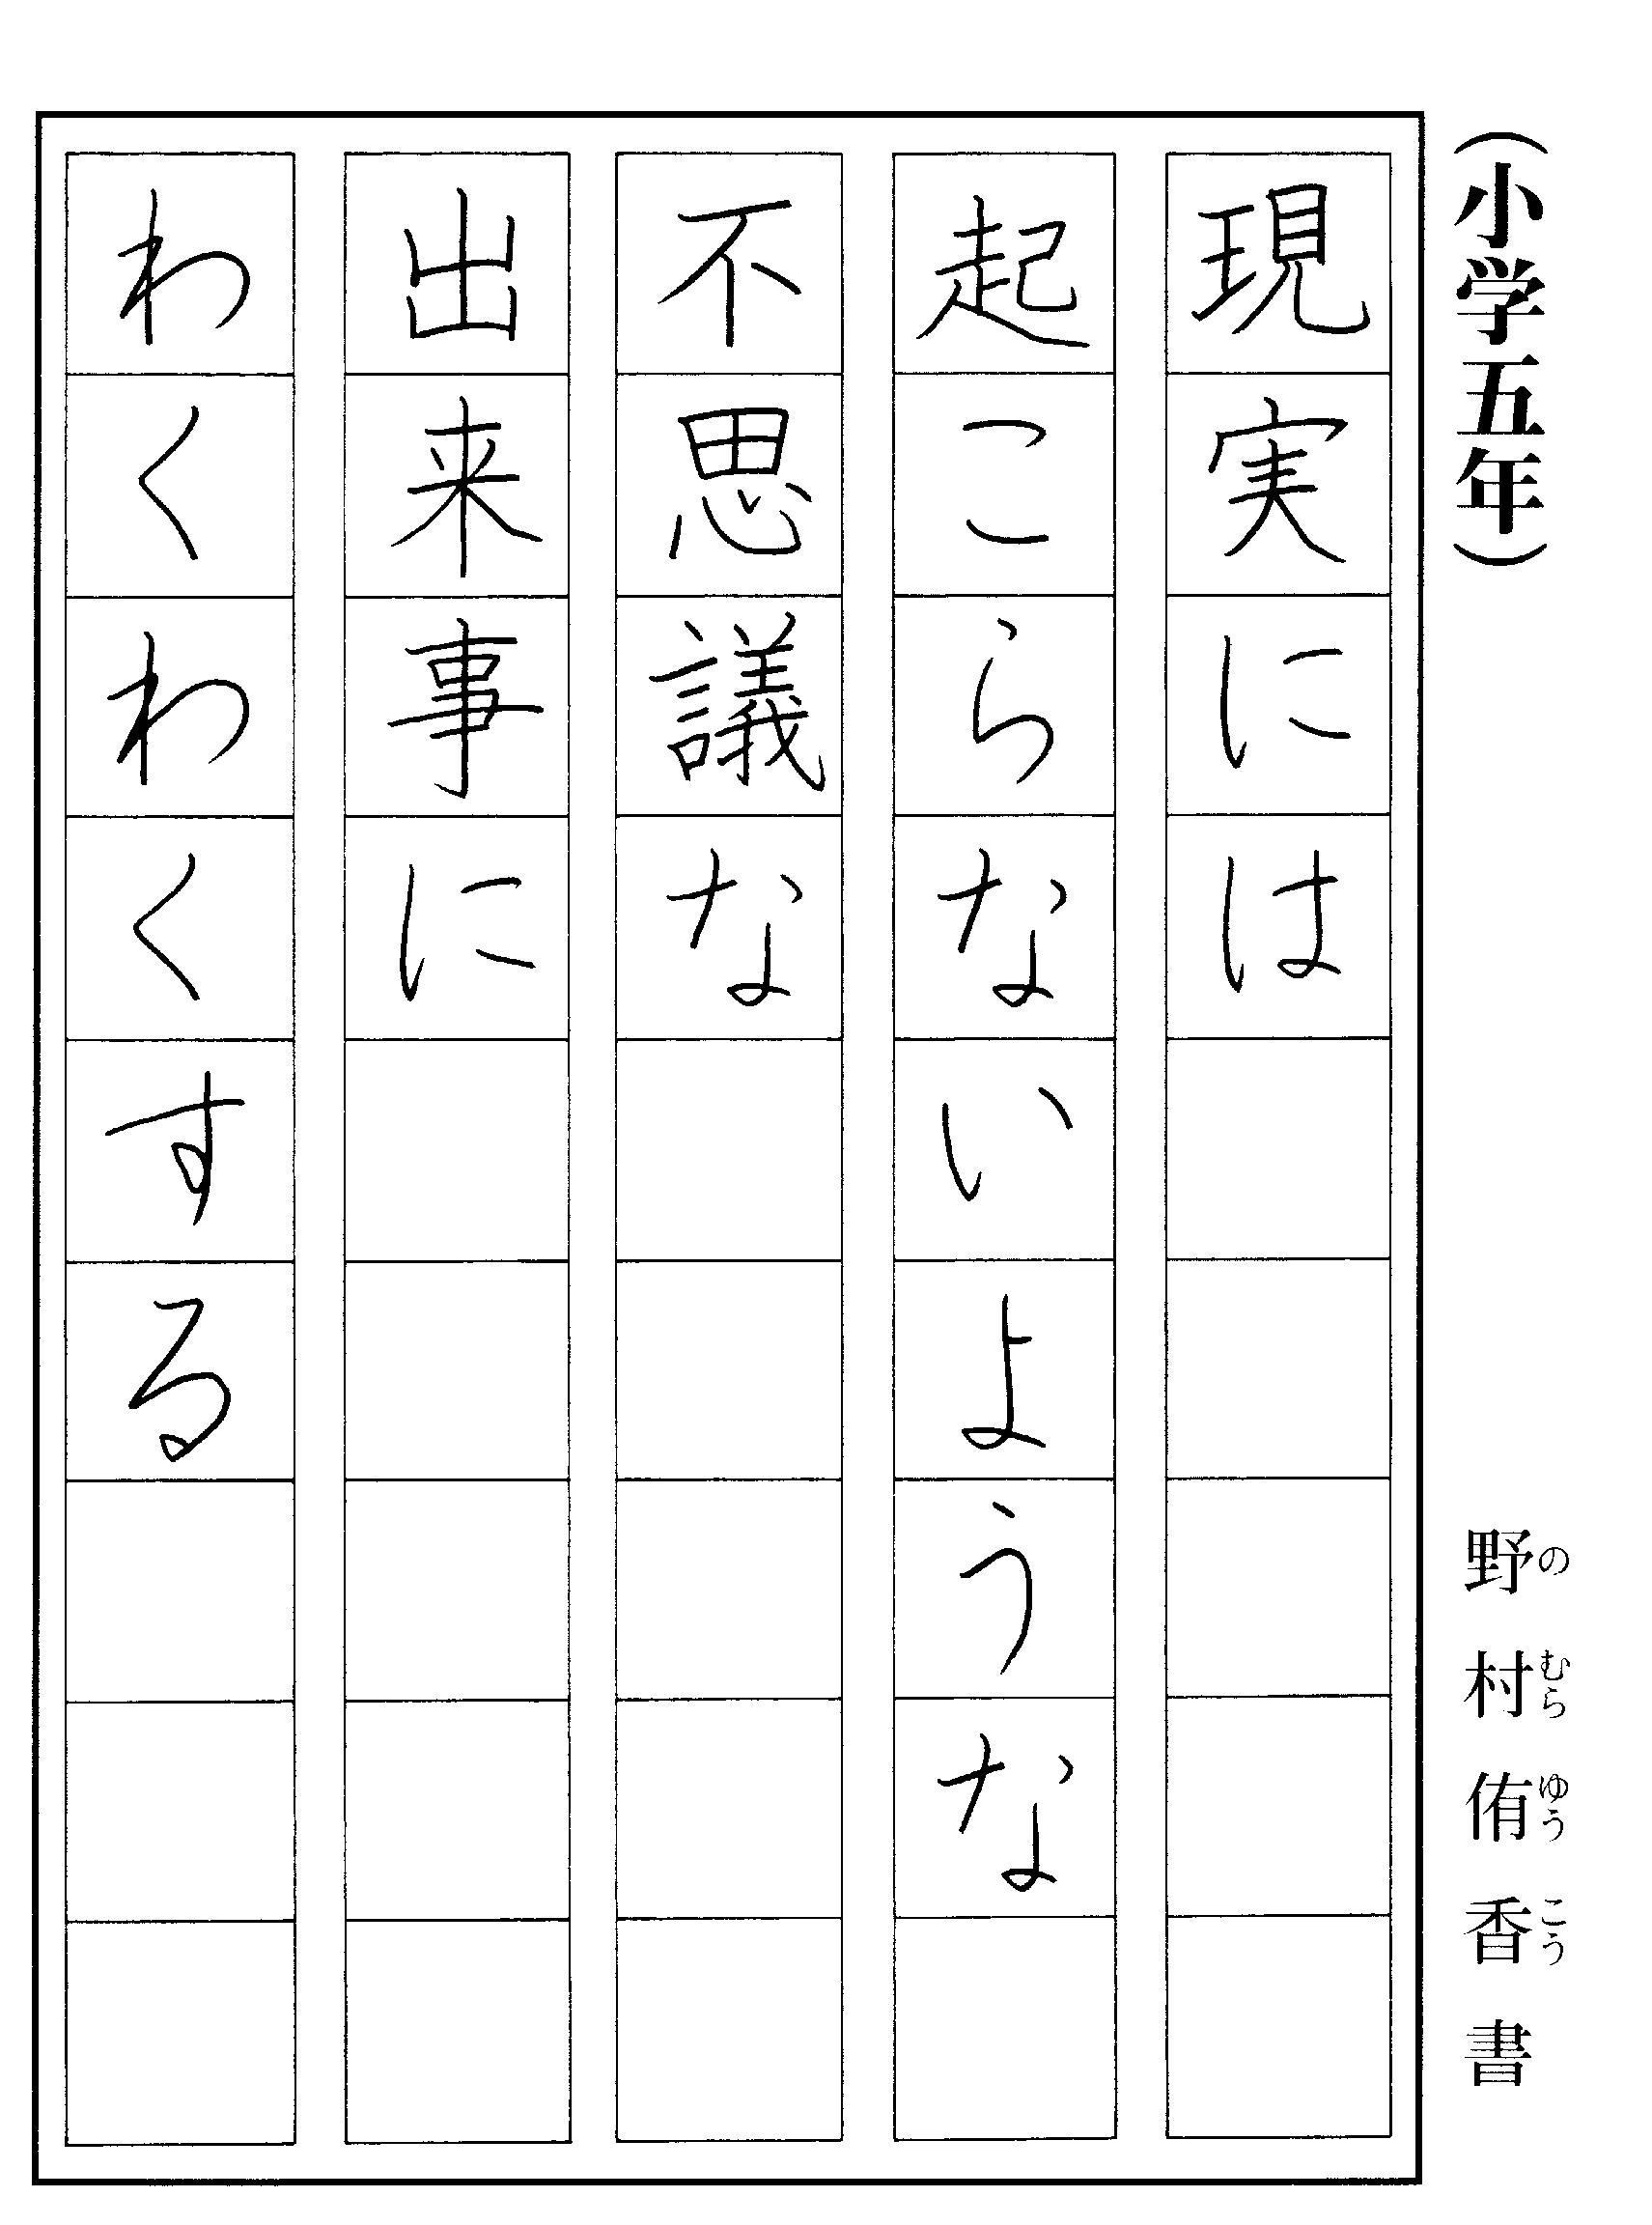 （小学五年）
野村侑香書
のむらゆうこう
現実には
起こらないような
不思議な
出来事に
わくわくする